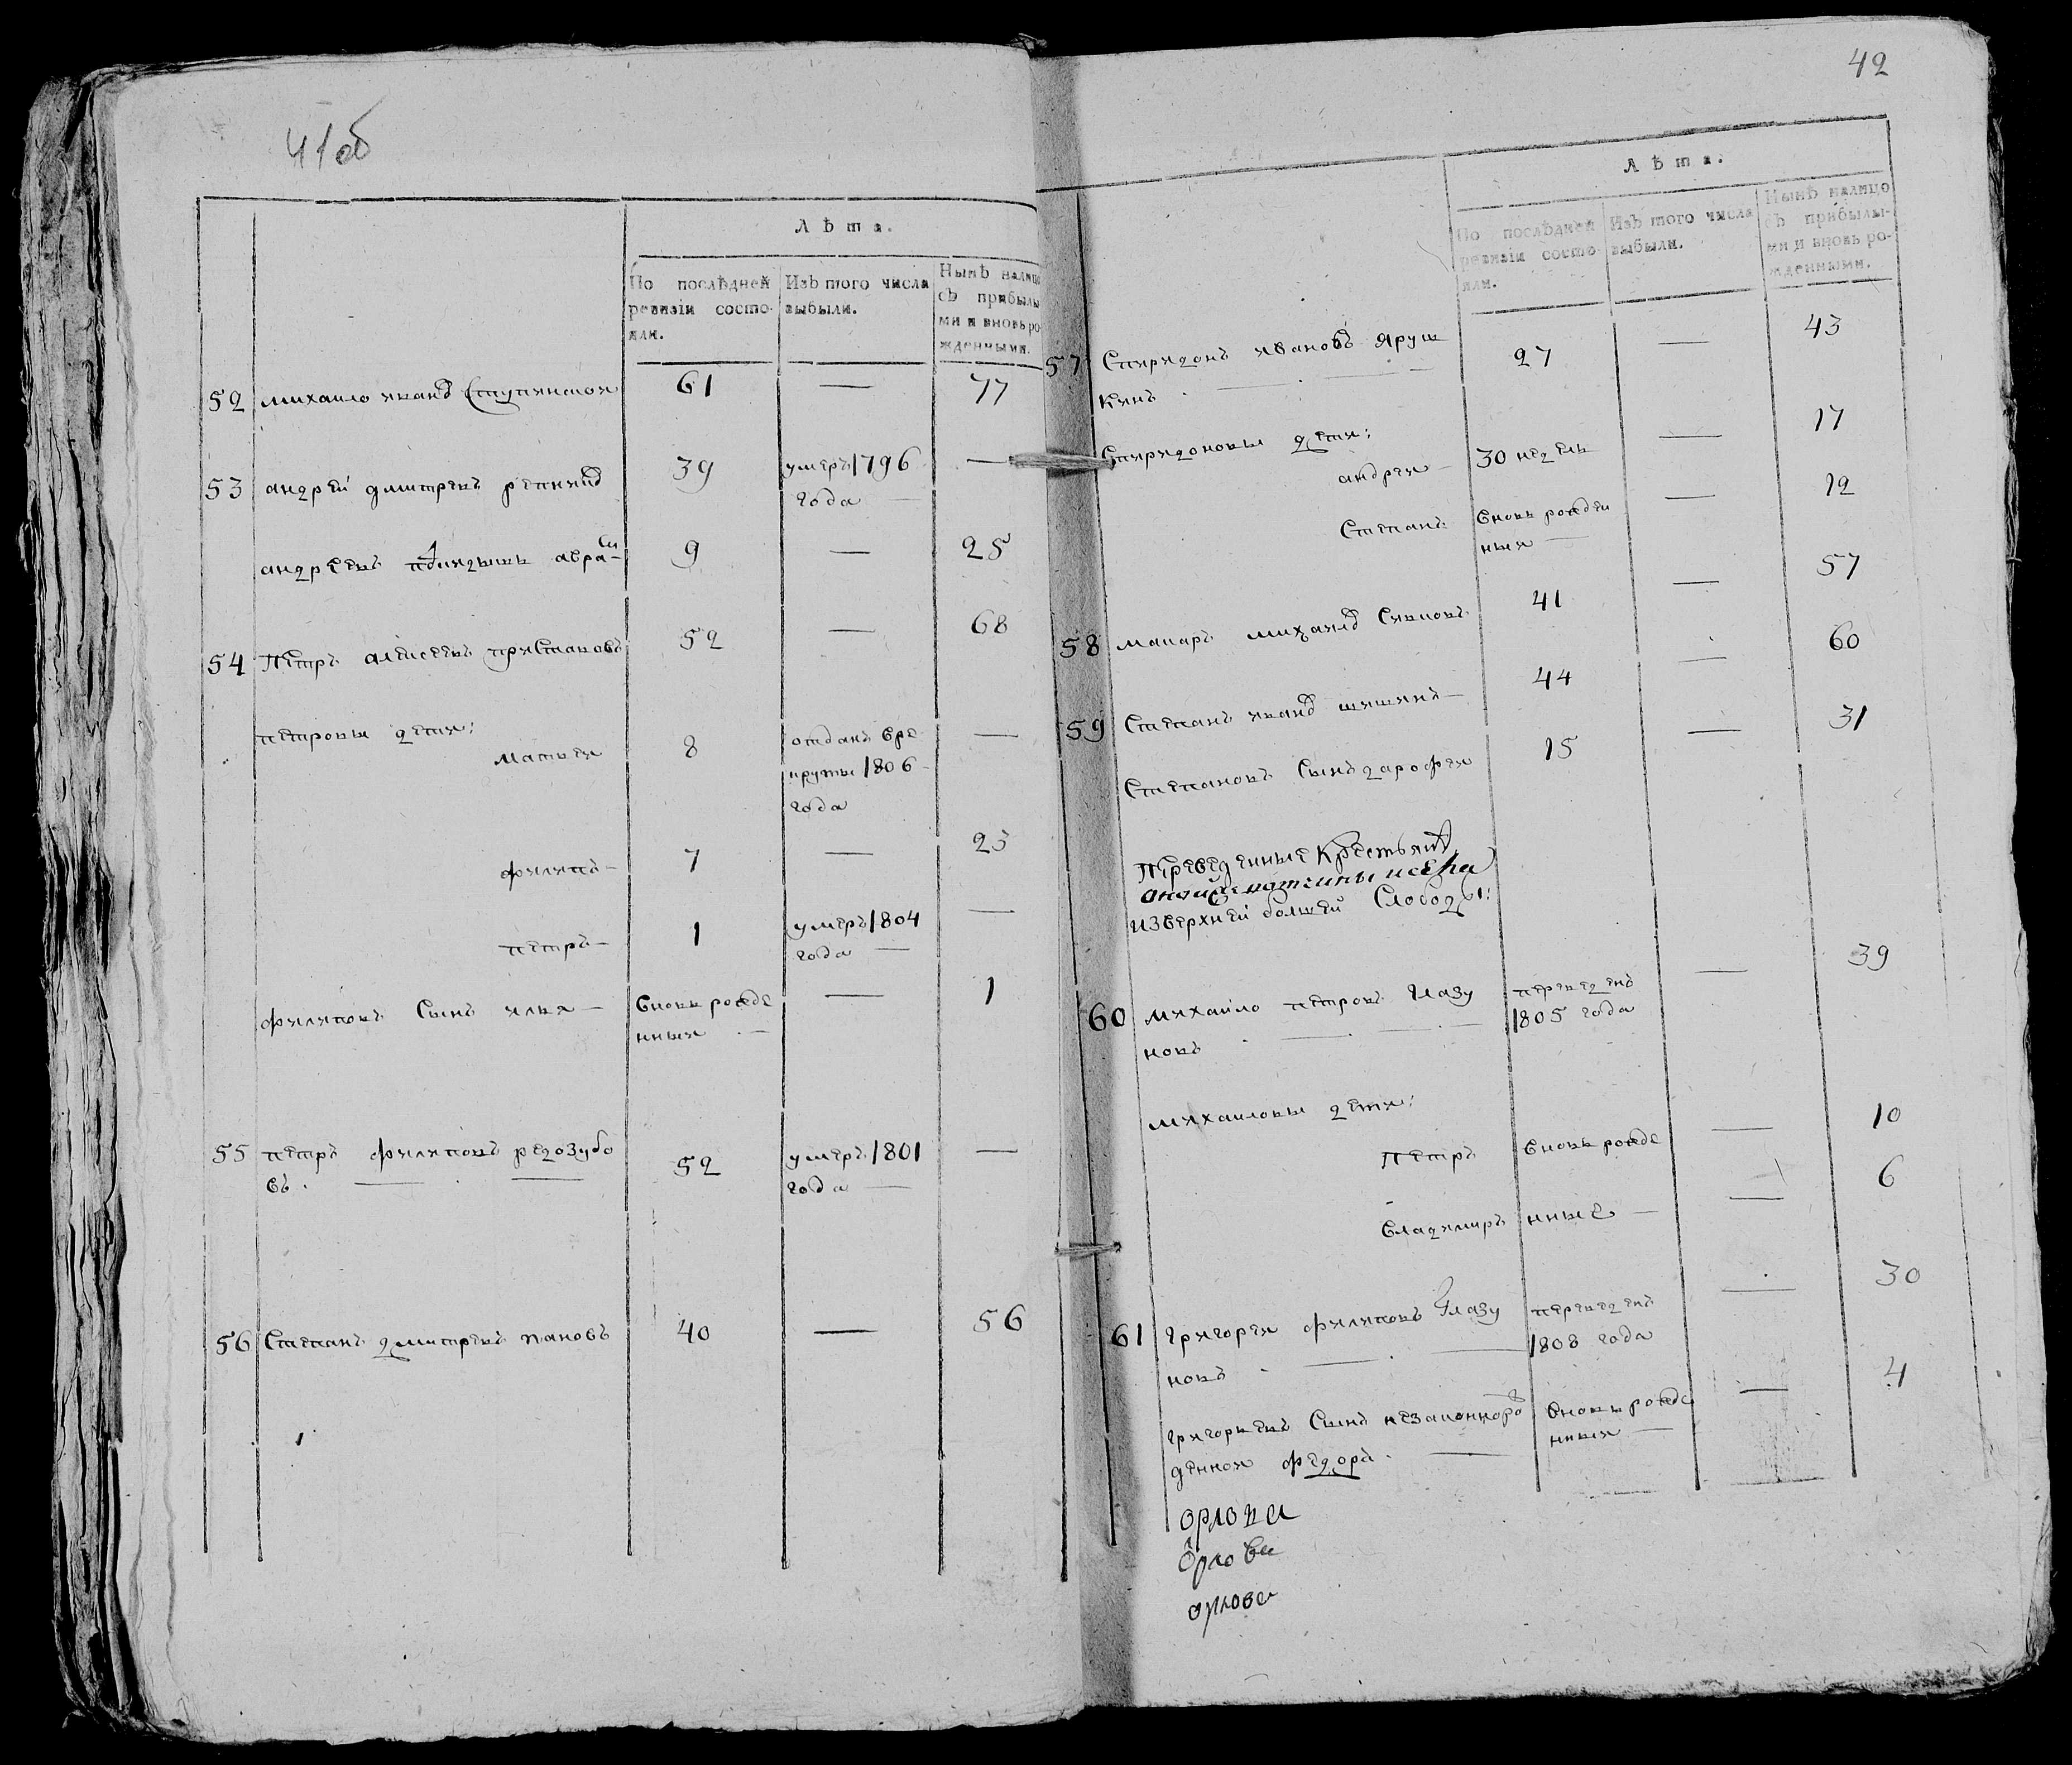 41об
Лѣта.
По послѣдней ревизіи состояли.
Изъ того числа выбыли.
Нынѣ налицо съ прибылыми и вновь рожденными.
52 михаило иванов Ступинской 61 — 77
53 андрей дмитревъ репкинъ 39 умеръ 1796 —
года —
андреевъ 9 — 25
54 Петръ алексеевъ 52 — 68
петровы дети:
матвей 8 отданъ вре —
круты 1806
года
филипъ — 7 — 23
петръ — 1 умеръ 1804 —
года —
филиповъ Сынъ илья — вновь рожде — 1
нный —
55 петръ филиповъ редозубо 52 умеръ 1801 —
въ. года —
56 Степанъ дмитревъ пановъ 40 — 56
42
Лѣта.
По послѣдней ревизіи состояли.
Изъ того числа выбыли.
Нынѣ налицо съ прибылыми и вновь рожденными.
57 Спиридонъ ивановъ Яруш 27 — 43
кинъ
Спиридоновы дети:
андрей — 30 недель — 17
Степанъ вновь рожден — 12
ный —
58 макаръ михаилов Сивковъ 41 — 57
59 Степанъ иванов шишкинъ — 44 — 60
Степановъ Сынъ дарофей 15 — 31
Переведенные крестьяне
оной
изверхней большей Слободы:
60 михаило петровъ Глазу переведенъ — 39
новъ 1805 года
михаиловы дети:
Петръ вновь рожде — 10
владимиръ нные — — 6
61 григорей филиповъ Глазу переведенъ — 30
новъ 1808 года
григорьевъ Сынъ незаконноро вновь рожде — 4
денной федоръ. — нный —
орлова
Орлова
орлова